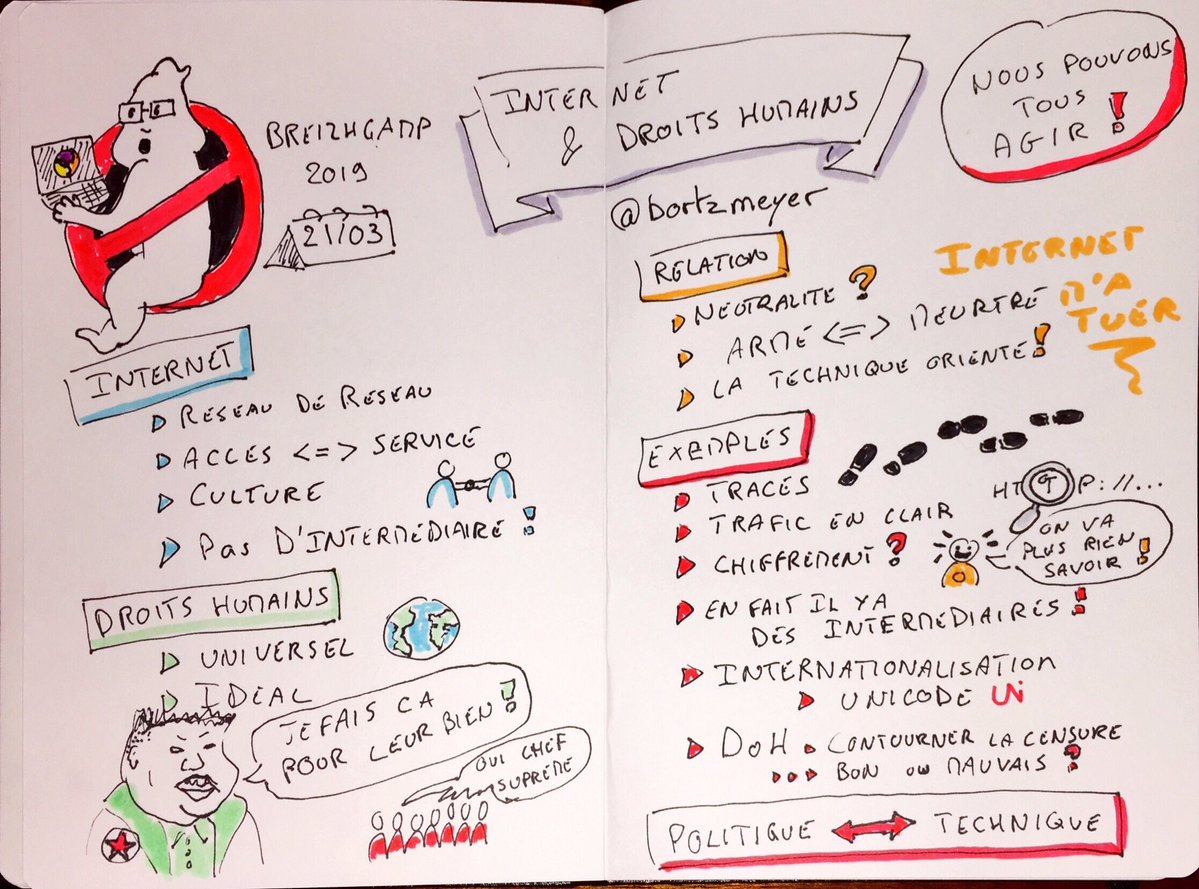 BREIZHCAMP
2019
21/03
INTERNET
& DROITS HUMAINS
@bortzmeyer
NOUS POUVONS
TOUS
AGIR !
INTERNET
RESEAU DE RESEAU
ACCES <=> SERVICE
CULTURE
PAS D'INTERMÉDIAIRE !
DROITS HUMAINS
UNIVERSEL
IDEAL
JE FAIS CA
POUR LEUR BIEN !
OUI CHEF
SUPREME
RELATION
NEUTRALITE ?
ARME <=> MEURTRE
LA TECHNIQUE ORIENTE !
INTERNET
M'A
TUER
EXEMPLES
TRACES
TRAFIC EN CLAIR
HTTP://...
CHIFFREMENT ?
ON VA
PLUS RIEN
SAVOIR !
EN FAIT IL Y A
DES INTERMEDIAIRES !
INTERNATIONALISATION
UNICODE
DOH . CONTOURNER LA CENSURE
... BON OU MAUVAIS ?
POLITIQUE <=> TECHNIQUE